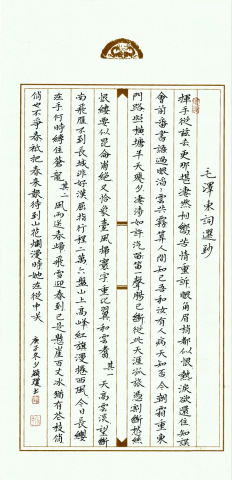 毛澤東詞選抄
揮手從兹去更那堪凄然相向苦情重訴眼角眉梢都似恨熱淚欲還住知誤
會前番書語過眼滔滔雲共霧算人間知己吾和汝人有病天知否今朝霜重東
門路照橫塘半天殘月凄清如許汽笛一聲腸已斷從此天涯孤旅憑割斷愁絲
恨縷要似昆侖崩絕又恰臺風掃寰宇重比翼和雲翥 其一 天高雲淡望斷
南飛雁不到長城非好漢屈指行程二萬六盤山上高峰紅旗漫捲西風今日長纓
在手何時縛住蒼龍 其二 風雨送春歸飛雪迎春到已是懸崖百丈冰猶有花枝俏
俏也不爭春衹把春來報待到山花爛漫時她在從中笑
庚子冬夕